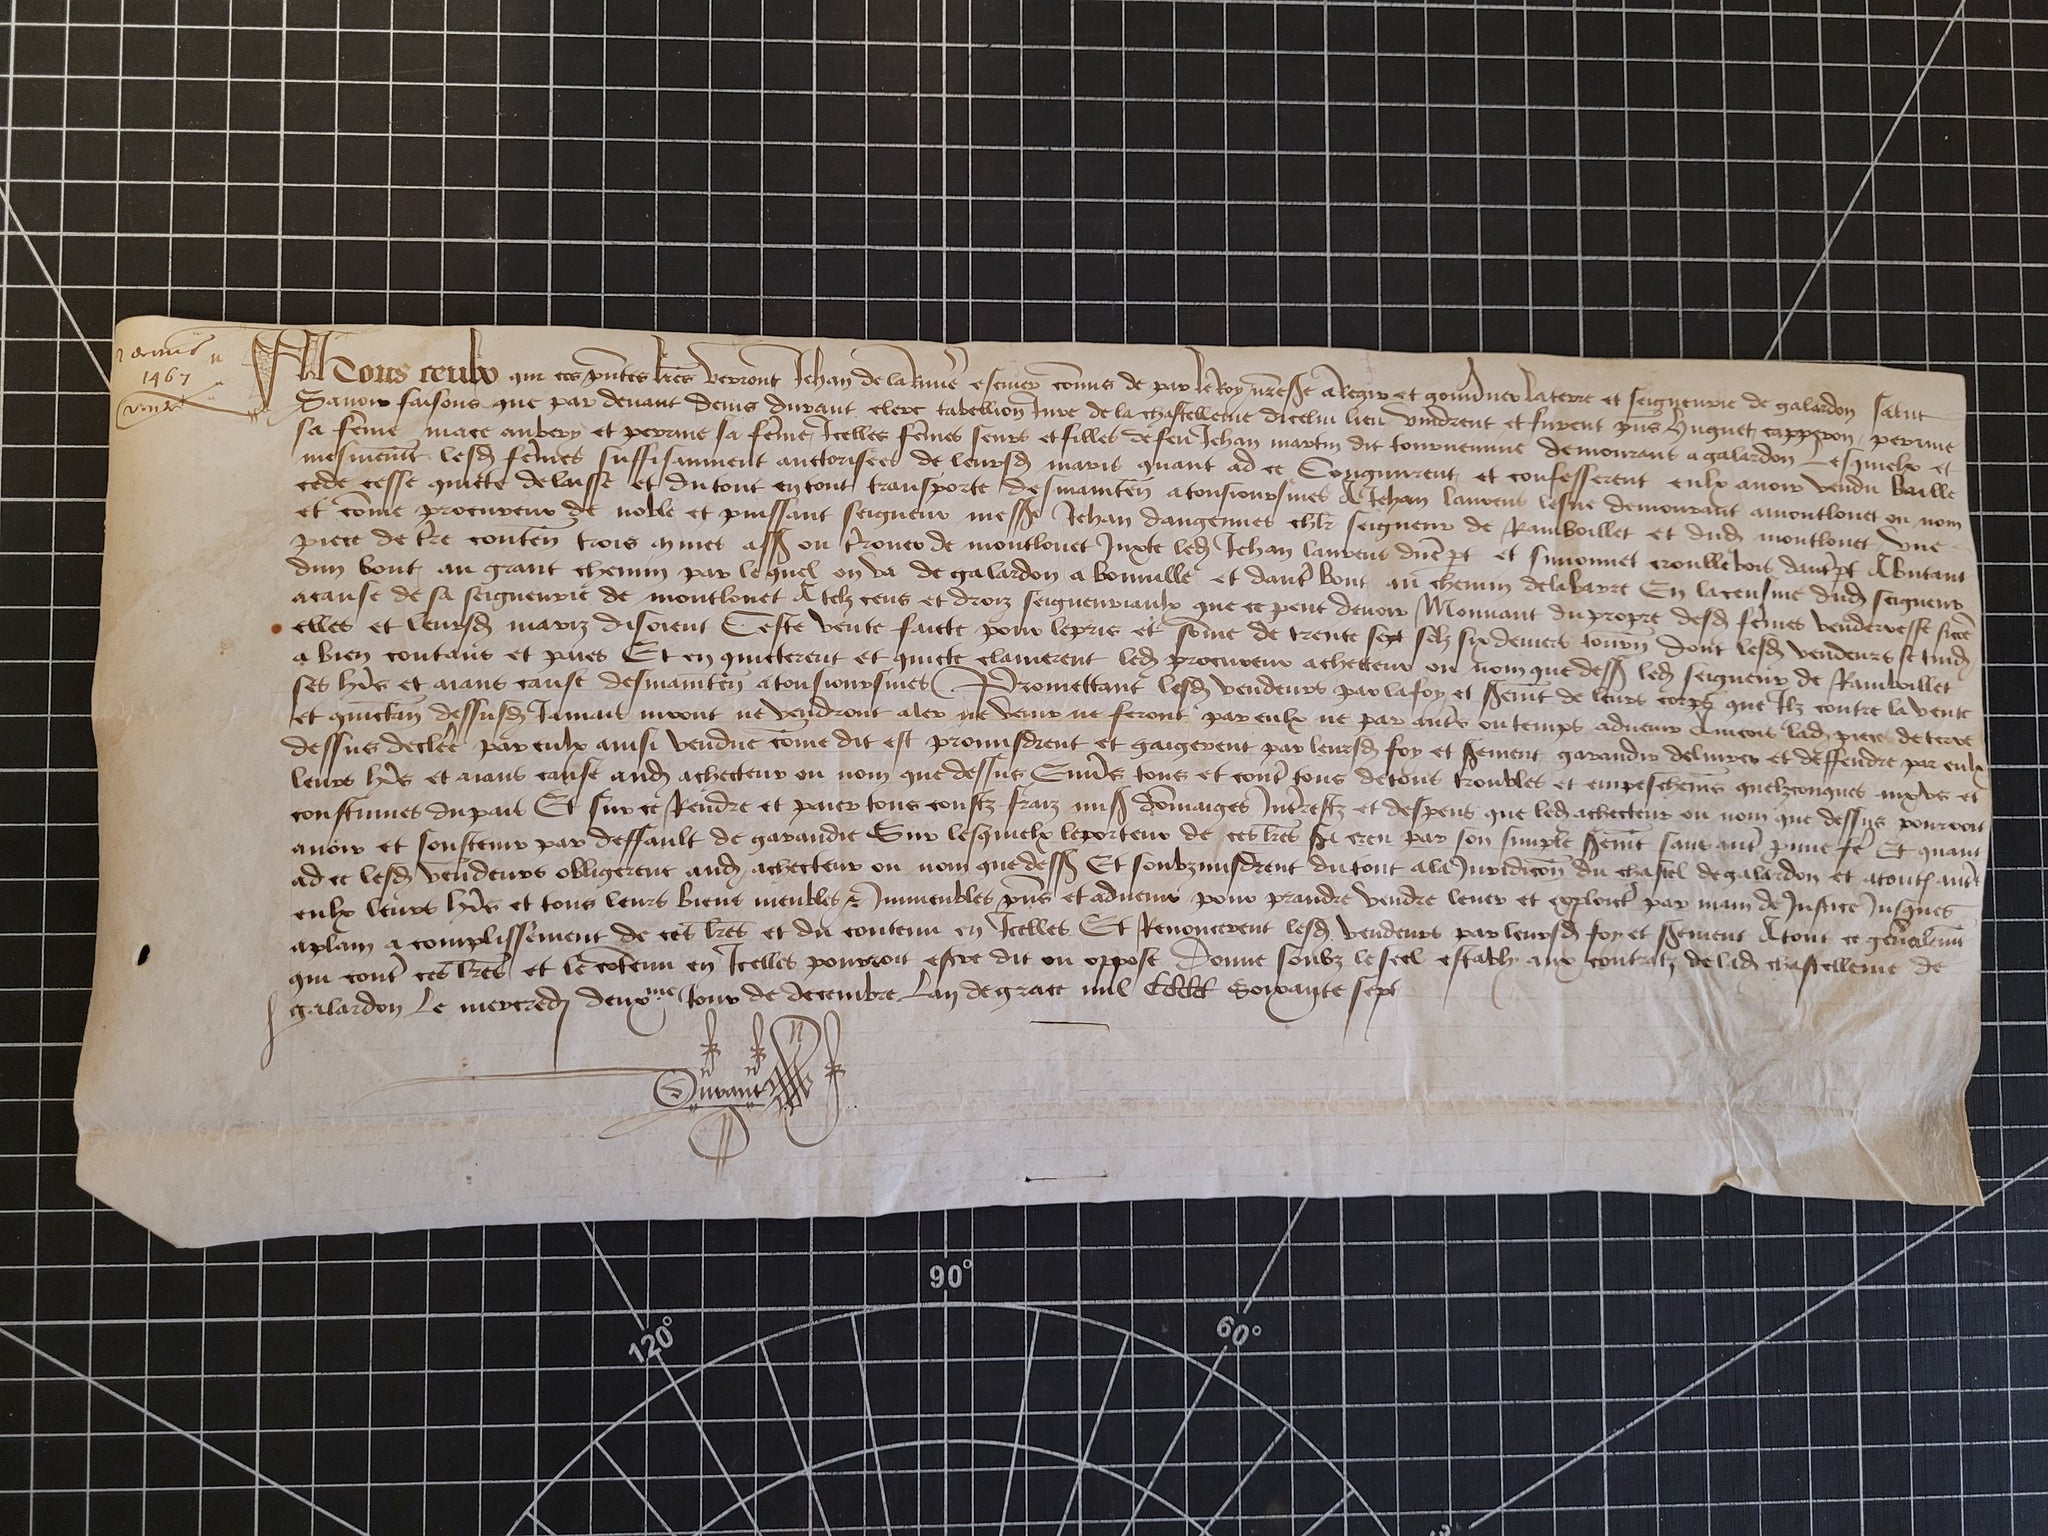 1467
A Tous ceulx qui ces pñtes lrẽs verront Jehan de la escuier cõmis de par le Roy nrẽ sẽ a Regir et gouũner la terre et seigneurie de galardon Salut
Sauoir faisons que par deuant denis durant clerc tabellion Jure de la chastellenie dicelui lieu vindrent et furent pñs huguet capperon perrine
sa fẽme mace aubery et perrine sa fẽme Icelles fẽmes seurs et filles de feu Jehan martin dit tournemine demourans a galardon Lesquielx et
mesmemẽt lesd fẽmes suffisanment auctorisees de leursd maris quant ad ce Congnurent et confesserent eulx auoir vendu baille
cede cesse quicte delaisse et du tout en tout transporte desmaintẽn a tousioursmes A Jehan laurens lesne demourant a montlouet ou nom
et cõme procureur de noble et puissant seigneur messẽ Jehan dangennes chlr seigneur de Ramboillet et dud montlouet vne
piece de trẽ contẽn trois mines assẽ ou de montlouet Juxte led Jehan laurens dunẽ pt et simonnet croulleboit dautrẽ pt Abutant
dun bout au grant chemin par lequel on va de galardon a bonuille et dautrẽ bout au chemin de la barre En la censiue dud seigneur
a cause de sa seigneurie de montlouet A telz cens et droiz seigneuriaulx que ce peut deuoir Mouuant du propre desd fẽmes venderresse sicẽ
elles et leursd mariz disoient Ceste vente faicte pour le pris et sõme de trente sept solz six deniers tourñ dont lesd vendeurs se tindr
a bien contans et paies Et en quicterent et quicte clamerent led procureur achecteur ou nom que dess led seigneur de Ramboillet
ses hẽrs et aians cause desmaintẽn a tousioursmes Promettant lesd vendeurs par la foy et sẽmẽt de leurs corps que Ilz contre la vente
et quictan dessusd Jamais niront ne vendront aler ne venir ne feront par eulx ne par autrẽs ou temps aduenir Aincois lad piece de terre
dessus declẽe par eulx ainsi vendue cõme dit est promisdrent et gaigerent par leursd foy et sẽment garandir deliurer et deffendre par eulx
leurs hẽrs et aians cause aud achecteur ou nom que dessus Enuẽrs tous et contrẽ tous de tous troubles et empeschemẽs quelzconques aux vs et
coustumes du pais Et sur ce Rendre et paier tous coustz fraiz mises dõmaiges Intẽrestz et despens que led achecteur ou nom que dessus pourroit
auoir et soustenir par deffault de garandie Sur lesquielx le porteur de ces lrẽs sẽ creu par son simple sẽmẽt sans autrẽ pruue fẽ Et quant
ad ce lesd vendeurs obligerent aud achecteur ou nom que dess Et soubzmisdrent du tout a la Juridicõn du chastel de galardon et a tout autrẽ
eulx leurs hẽrs et tous leurs biens meubles & Immeubles pñs et aduenir pour prandre vendre leuer et exploictẽ par main de Justice Jusques
a plain acomplissement de ces lrẽs et du contenu en Icelles Et Renoncerent lesd vendeurs par leursd foy et sẽment A tout ce gẽnẽalmẽt
qui contrẽ ces lrẽs et le cõtenu en Icelles pourroit estre dit ou oppose Donne soubz le seel establi aux contratz de lad chastellenie de
galardon Le mercredj deuxme Jour de decembre Lan de grace mil CCCC Soixante sept
Durant